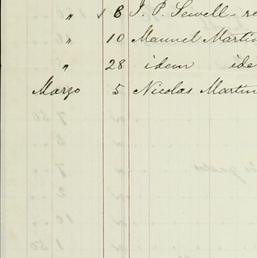 " 6 J. P. Sewell - re
" 10 Manuel Martin
" 28 idem ide
Marzo 5 Nicolas Martin